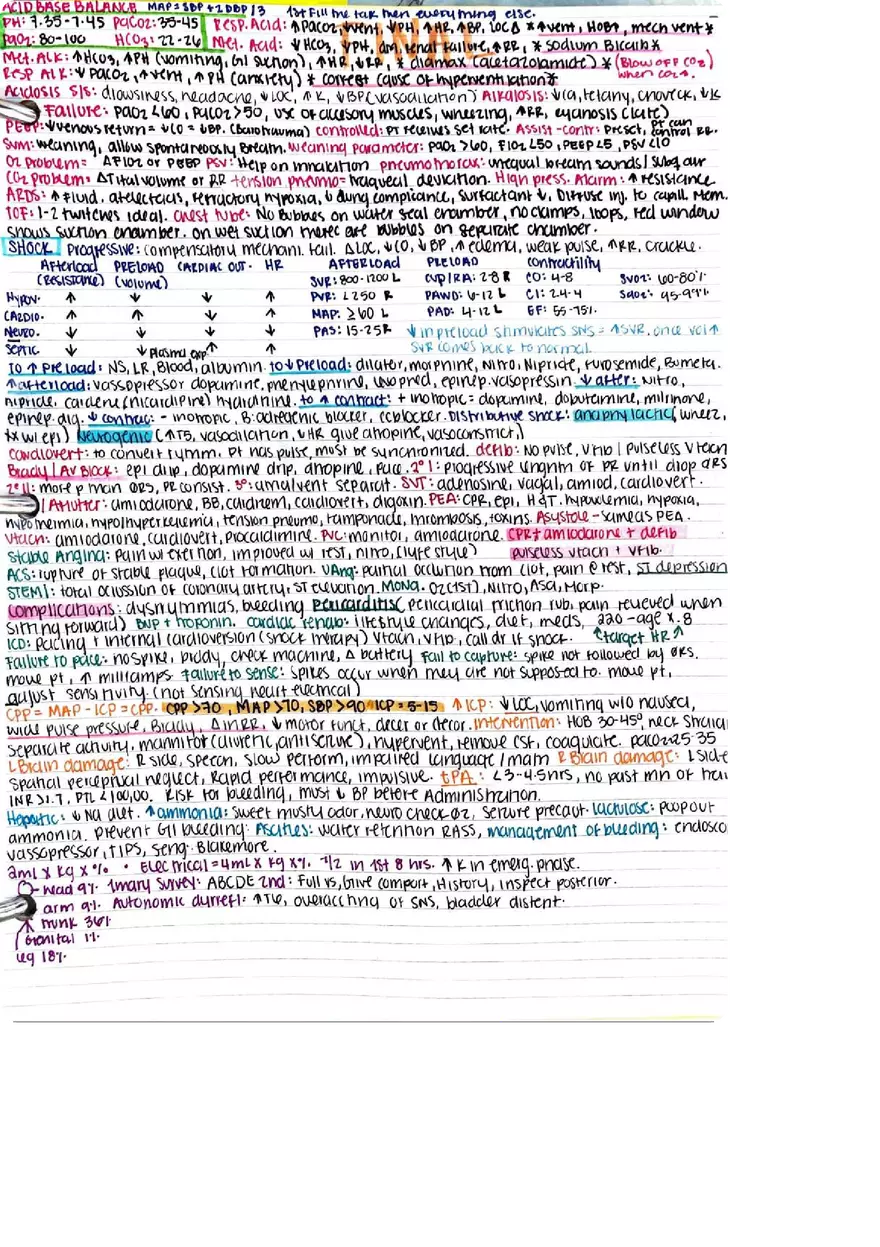 ACID BASE BALANCE MAP = SBP + 2 DBP / 3 1st Fill me tak then everything else.
PH: 7.35-7.45 PaCO2: 35-45 Resp. Acid: ↑PaCO2 ↓vent, ↓PH, ↑HR, ↑BP, LOC Δ * ↑vent, HOB↑, mech vent *
PaO2: 80-100 HCO3: 22-26 Met. Acid: ↓HCO3, ↓PH, dm, renal failure, ↑RR, * sodium Bicarb *
Met. ALK: ↑HCO3, ↑PH (vomiting, GI suction), ↑HR, ↓RR, * diamax (acetazolamide) * (Blow off CO2)
Resp ALK: ↓PaCO2, ↑vent, ↑PH (anxiety) * correct cause of hyperventilation * when CO2↑.
Acidosis S/S: drowsiness, headache, ↓LOC, ↑K, ↓BP (vasodilation) Alkalosis: ↓Ca, tetany, choveck, ↓K
Failure: PaO2 <60, PaCO2 >50, use of accesory muscles, wheezing, ↑RR, cyanosis (late)
PEEP: ↓venous return = ↓CO = ↓BP. (barotrauma) controlled: PT receives set rate. Assist-contr: Preset, PT can control RR.
SIMV: weaning, allow spontaneously breath. Weaning parameter: PaO2 >60, FiO2 <50, PEEP <5, PSV <10
O2 Problem = Δ FiO2 or PEEP PSV: Help on inhalation pneumothorax: unequal breath sounds / subq air
CO2 problem: Δ Tital volume or RR tension pneumo = traqueal deviation. High press. Alarm: ↑ resistance
ARDS: ↑ fluid, atelectacis, refractory hypoxia, ↓ lung compliance, surfactant ↓, Diffuse inj. to capill. Mem.
TOF: 1-2 twitches ideal. Chest tube: No bubbles on water seal chamber, no clamps, loops, red window
shows suction chamber. on wet suction theres are bubbles on separate chamber.
SHOCK Progressive: compensatory mechani. fail. ΔLOC, ↓CO, ↓BP, ↑edema, weak pulse, ↑RR, crackle.
Afterload PRELOAD CARDIAC OUT. HR AFTERLOAD PRELOAD contractility
(Resistance) (volume) SVR: 800-1200 L CVP/RA: 2-8 R CO: 4-8 SVO2: 60-80%
HYPOV. ↑ ↓ ↓ ↑ PVR: <250 R PAWD: 6-12 L CI: 2.4-4 SaO2: 95-99%
CARDIO. ↑ ↑ ↓ ↑ MAP: ≥60 L PAD: 4-12 L EF: 55-75%
NEURO. ↓ ↓ ↓ ↓ PAS: 15-25 R ↓ in preload stimulates SNS = ↑SVR. once vol ↑
SEPTIC ↓ ↓ Plasma exp ↑ ↑ SVR comes back to normal.
TO ↑ PRELOAD: NS, LR, Blood, albumin. to ↓ Preload: dilator, morphine, Nitro, Nipride, Furosemide, Bumeta.
↑ afterload: vassopressor dopamine, phenylephrine, levo pred, epinep. vasopressin. ↓ after: Nitro,
nipride, cardene (nicardipine) hydralhine. to ↑ contract: + inotropic = dopamine, dobutamine, milrinone,
epinep. dig. ↓ contrac: - inotropic, B: adregenic blocker, CCblocker. Distributive shock: anaphylactic (wheez,
tx w/ epi) Neurogenic (↑T5, vasodilation, ↓HR give atropine, vasoconstrict)
Cardiovert: to convert rythm. PT has pulse, must be synchronized. defib: No pulse, Vfib / Pulseless Vtach
Brady / AV Block: epi drip, dopamine drip, atropine, pace. 2° I: Progressive length of PR until drop QRS
2° II: more p than QRS, PR consist. 3°: atrialvent separat. SVT: adenosine, vagal, amiod, cardiovert.
/ Aflutter: amiodarone, BB, cardizem, cardiovert, digoxin. PEA: CPR, epi, H&T. hypovolemia, hypoxia,
hypothermia, hypo/hyperkalemia, tension pneumo, tamponade, thrombosis, toxins. Asystole - same as PEA.
Vtach: amiodarone, cardiovert, procaidimine. PVC: monitor, amiodarone. CPR + amiodarone + defib
Stable Angina: Pain w/ exertion, improved w/ rest, nitro, (lyfe style) pulseless vtach + vfib.
ACS: rupture of stable plaque, clot formation. UAng: partial occlution from clot, pain @ rest, ST depression
STEMI: total oclussion of coronary artery, ST elevation. MONA. O2 (1st), NITRO, ASA, Morp.
Complications: dysrhythmias, bleeding pericarditis (pericardial friction rub, pain relieved when
sitting forward) BNP + troponin. Cardiac rehab: lifestyle changes, diet, meds, 220 - age x .8
ICD: Pacing + internal cardioversion (shock therapy) Vtach, Vfib, call dr if shock. ↑target HR↑
Failure to pace: no spike, brady, check machine, Δ battery Fail to capture: spike not followed by QRS.
move pt, ↑ milliamps Failure to sense: Spikes occur when they are not supposed to. move pt,
adjust sensitivity. (not sensing heart electrical)
CPP = MAP - ICP = CPP. CPP >70, MAP >70, SBP >90 ICP = 5-15 ↑ICP: ↓LOC, vomiting w/o nausea,
wide pulse pressure, Brady, Δ in RR, ↓ motor funct, decer or decor. Intervention: HOB 30-45°, neck straig
separate activity, mannitol (diuretic, antiseizure), hypervent, remove CSF, coagulate. PaCO2 25-35
L Brain damage: R side, speech, slow perform, impaired language / math R Brain damage: L side
spatial perceptual neglect, Rapid performance, impulsive. tPA: <3-4.5hrs, no past mn of
INR >1.7, PTL <100,00. Risk for bleeding, must ↓ BP before Administration.
Hepatic: ↓ Na diet. ↑ammonia: sweet musty odor, neuro check q2, seizure precaut. lactulose: poop out
ammonia. Prevent GI bleeding. Ascities: water retention RASS, management of bleeding: endosco
vassopressor, TIPS, seng. Blakemore.
2mL x kg x % • Electrical = 4mL x kg x % 1/2 in 1st 8 hrs. ↑K in emerg. phase.
head 9% 1mary survey: ABCDE 2nd: Full vs, Give comport, History, inspect posterior.
arm 9% Autonomic dysrefl: ↑T6, overacting of SNS, bladder distent.
trunk 36%
genital 1%
leg 18%